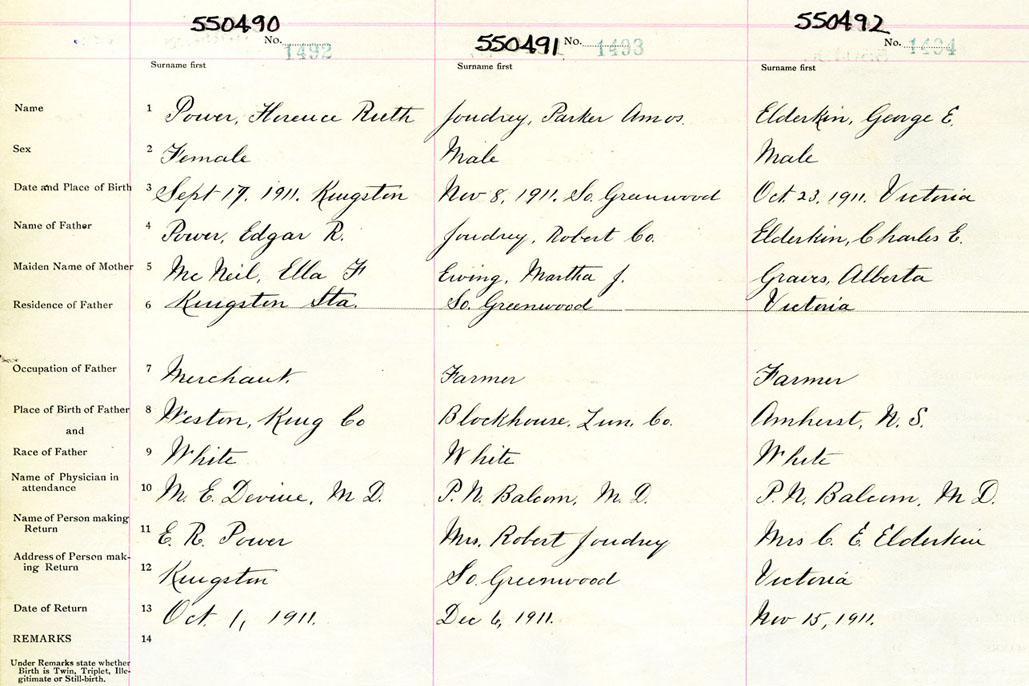 550490 550491 550492
No. 1492 No. 1493 No. 1494
Surname first Surname first Surname first
Name 1 Power, Florence Ruth Joudrey, Parker Amos. Elderkin, George E.
Sex 2 Female Male Male
Date and Place of Birth 3 Sept 17, 1911. Kingston Nov 8, 1911. So. Greenwood Oct 23, 1911. Victoria
Name of Father 4 Power, Edgar R. Joudrey, Robert Co. Elderkin, Charles E.
Maiden Name of Mother 5 McNeil, Ella F Ewing, Martha J. Graves, Alberta
Residence of Father 6 Kingston Sta. So. Greenwood Victoria
Occupation of Father 7 Merchant. Farmer Farmer
Place of Birth of Father 8 Weston, King Co Blockhouse, Lun, Co. Amherst, N. S.
and
Race of Father 9 White White White
Name of Physician in
attendance 10 M. E. Devine, M D. P. N. Balcom, M. D. P. N. Balcom, M D.
Name of Person making
Return 11 E. R. Power Mrs. Robert Joudrey Mrs C. E. Elderkin
Address of Person mak-
ing Return 12 Kingston So. Greenwood Victoria
Date of Return 13 Oct. 1, 1911. Dec 6, 1911. Nov 15, 1911.
REMARKS 14
Under Remarks state whether
Birth is Twin, Triplet, Ille-
gitimate or Still-birth.